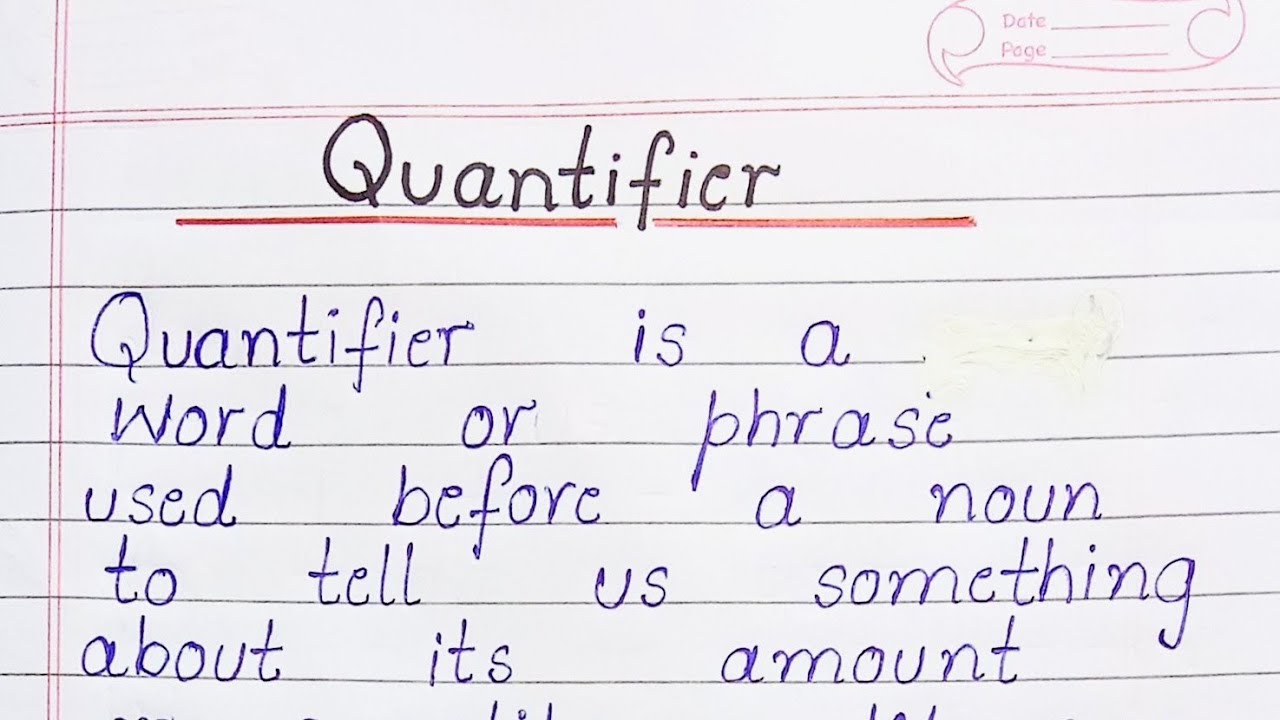 Date
Page
Quantifier
Quantifier is a
word or phrase
used before a noun
to tell us something
about its amount